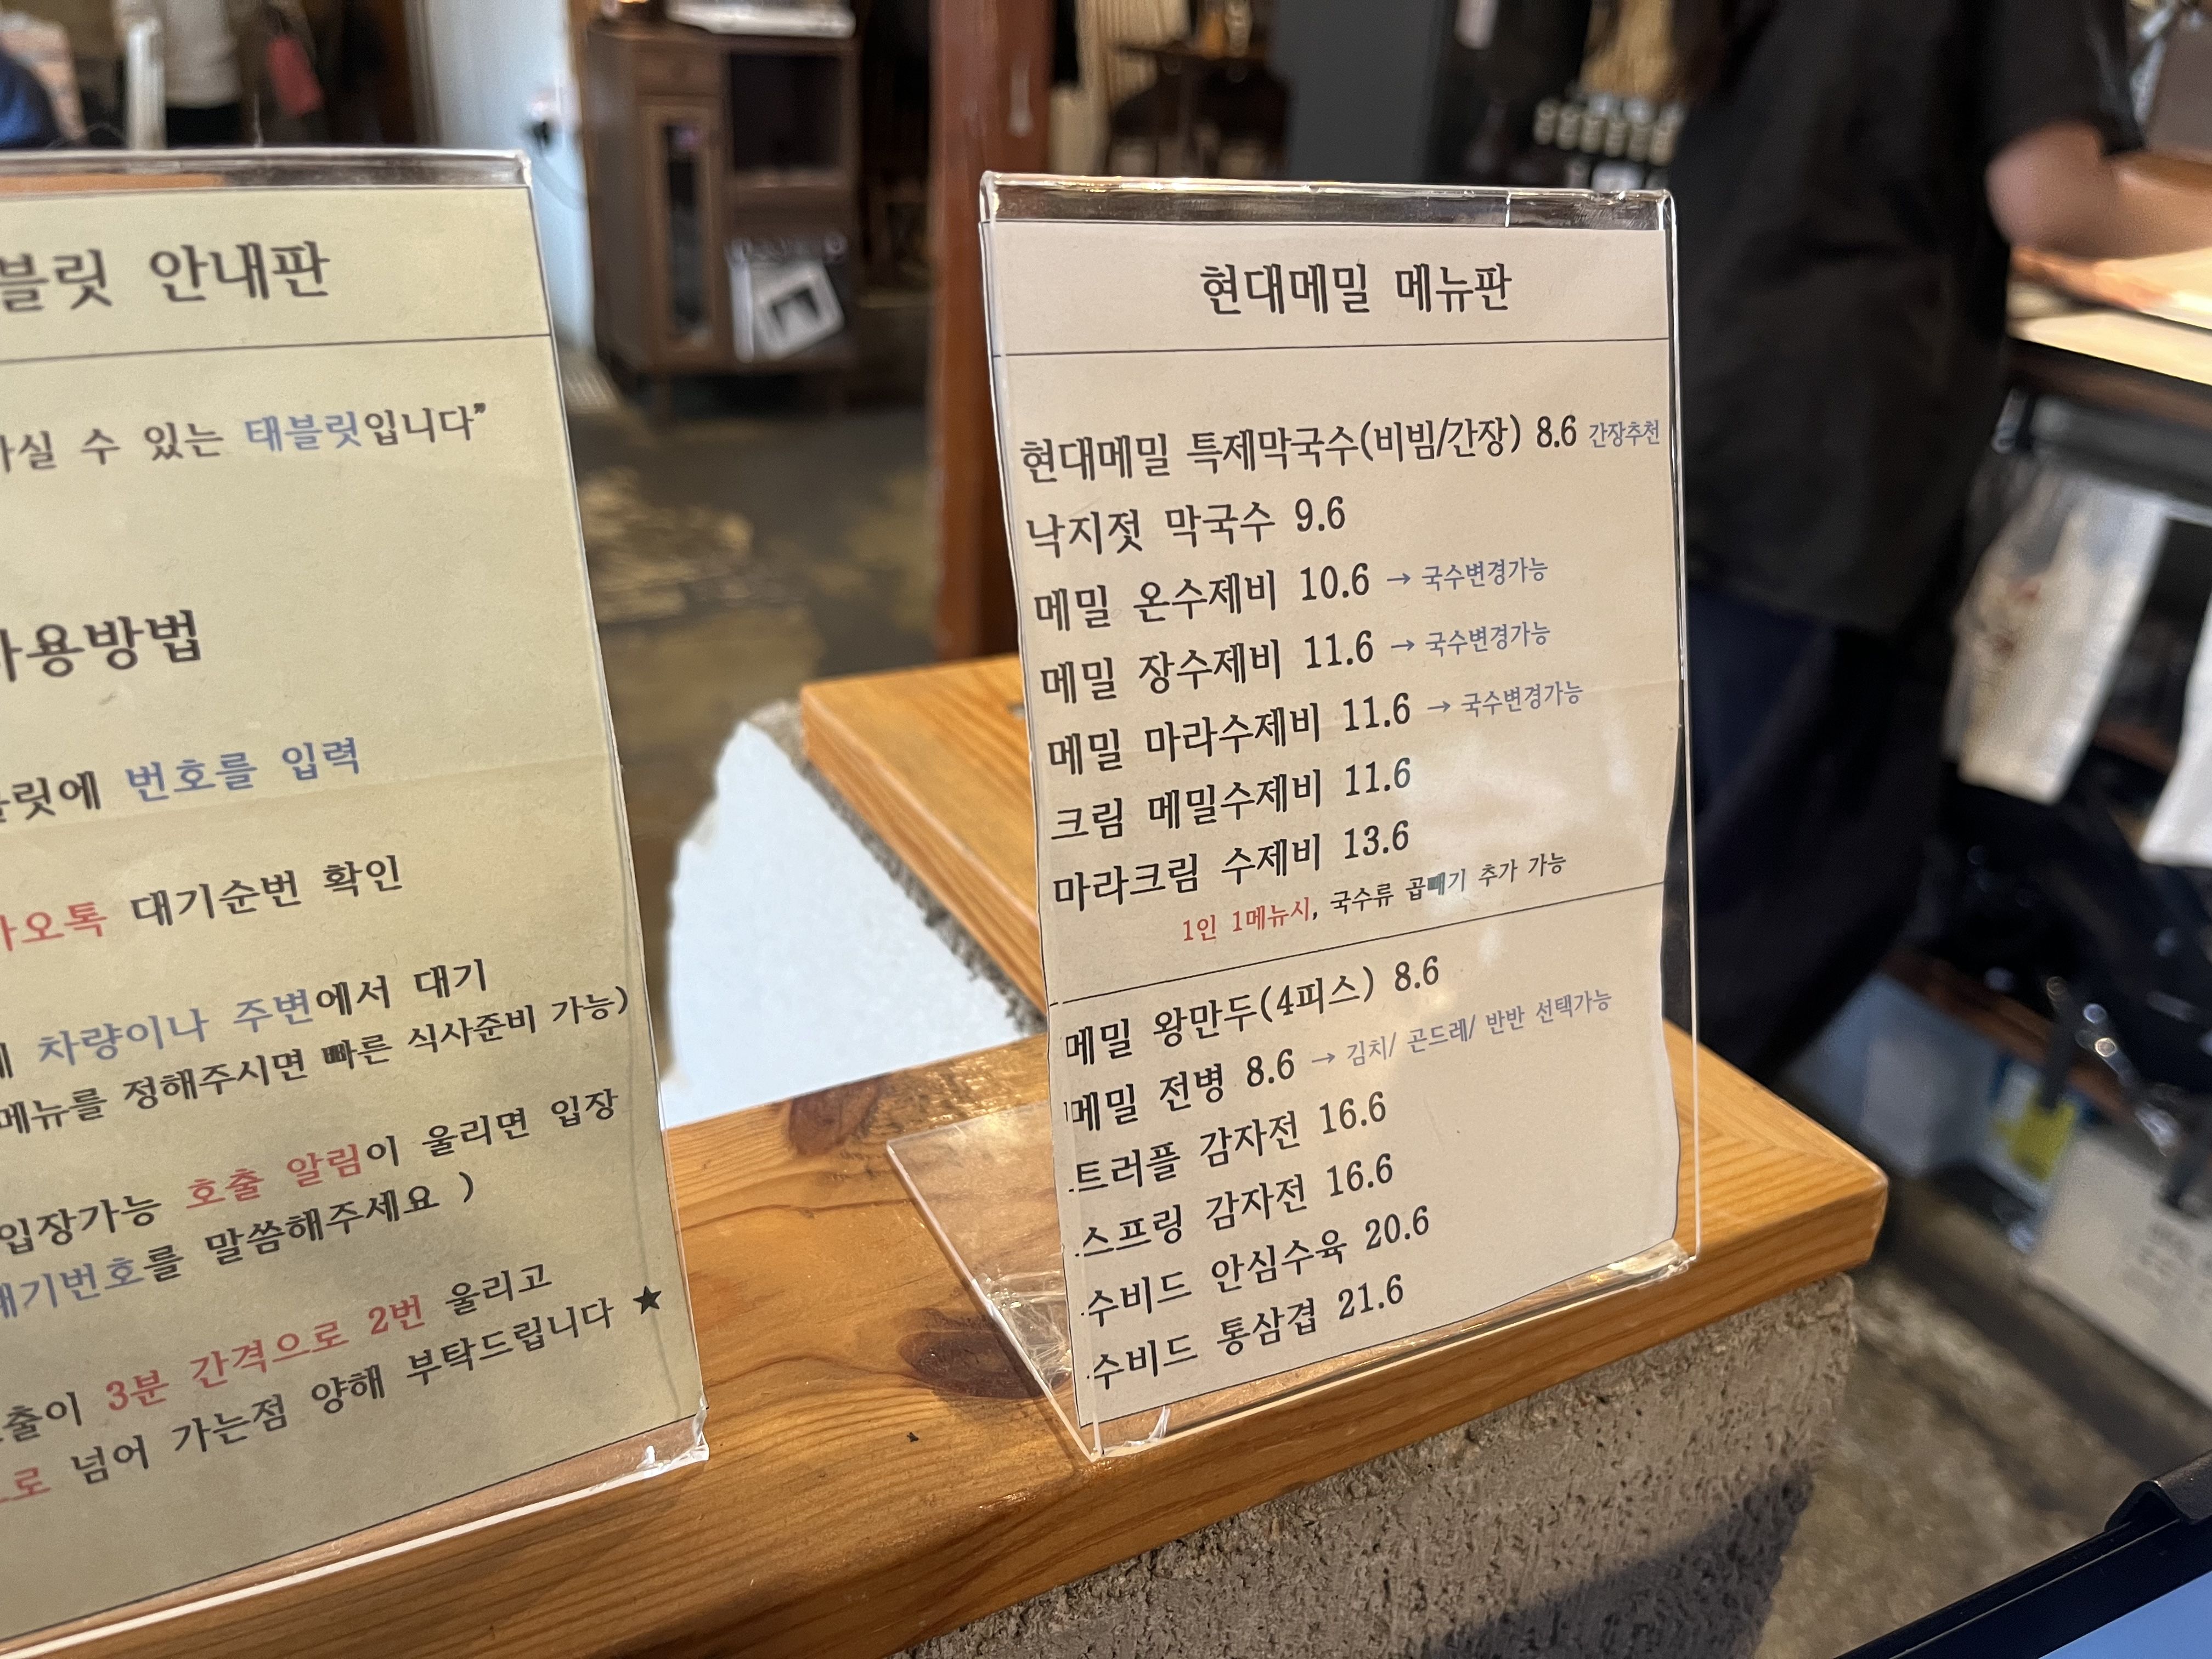 블릿 안내판
실 수 있는 태블릿입니다”
용방법
릿에 번호를 입력
오톡 대기순번 확인
차량이나 주변에서 대기
메뉴를 정해주시면 빠른 식사준비 가능)
입장가능 호출 알림이 울리면 입장
기번호를 말씀해주세요 )
출이 3분 간격으로 2번 울리고
로 넘어 가는점 양해 부탁드립니다 ★
현대메밀 메뉴판
현대메밀 특제막국수(비빔/간장) 8.6 간장추천
낙지젓 막국수 9.6
메밀 온수제비 10.6 → 국수변경가능
메밀 장수제비 11.6 → 국수변경가능
메밀 마라수제비 11.6 → 국수변경가능
크림 메밀수제비 11.6
마라크림 수제비 13.6
1인 1메뉴시, 국수류 곱빼기 추가 가능
메밀 왕만두(4피스) 8.6
메밀 전병 8.6 → 김치/ 곤드레/ 반반 선택가능
트러플 감자전 16.6
스프링 감자전 16.6
수비드 안심수육 20.6
수비드 통삼겹 21.6